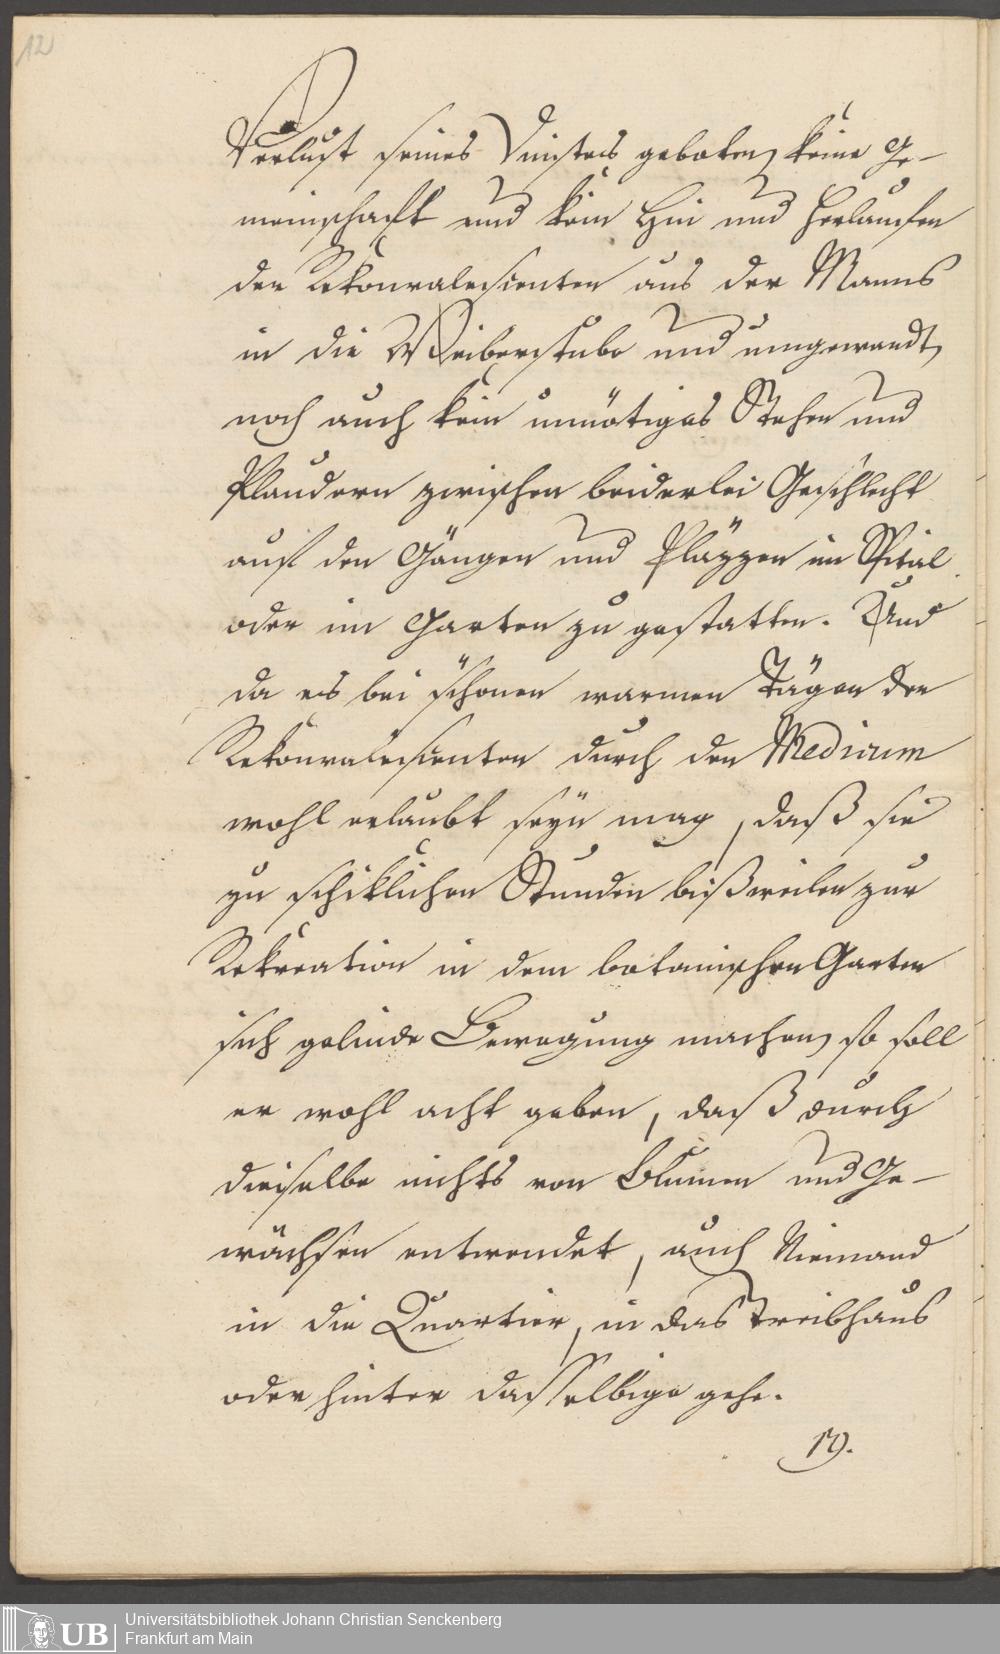 12
Verlust seines Dinstes geboten, keine Ge-
meinschaft und kein Hin und Herlaufen
der Rekonvalescienten aus der Manns
in die Weiberstube und umgewandt,
noch auch kein unnötiges Stehen und
Plaudern zwischen beiderlei Geschlecht
auf den Gängen und Pläzzen im Spital
oder im Garten zu gestatten. Und
da es bei schönen warmen Tägen den
Rekonvalescienten durch den Medicum
wohl erlaubt seyn mag, daß sie
zu schiklichen Stunden bißweilen zur
Rekreation in dem botanischen Garten
sich gelinde Bewegung machen, so soll
er wohl acht geben, daß durch
dieselbe nichts von Blumen und Ge-
wächsen entwendet, auch Niemand
in die Quartier, in das Treibhaus
oder hinter dasselbige gehe.
19.
UB
Universitätsbibliothek Johann Christian Senckenberg
Frankfurt am Main